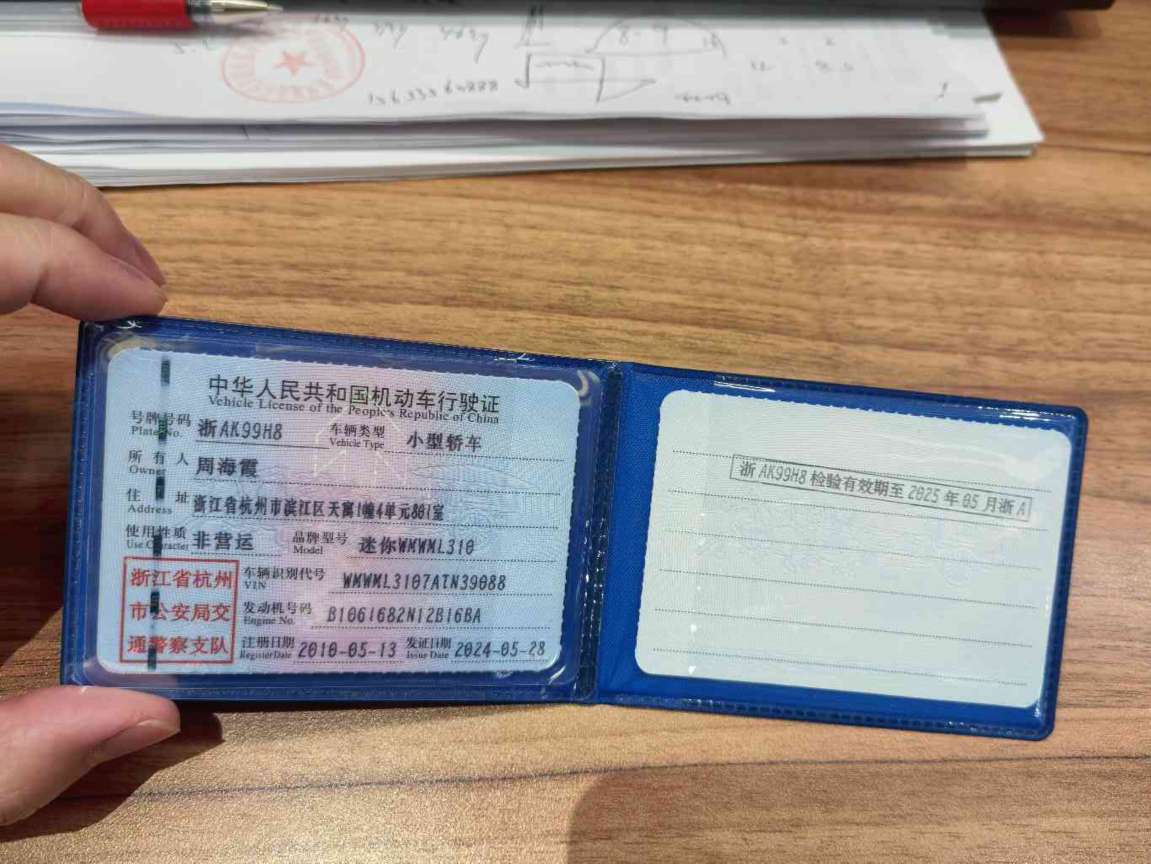 15633560888
8-9
中华人民共和国机动车行驶证
Vehicle License of the People's Republic of China
号牌号码 浙AK99H8 车辆类型 小型轿车
Plate No. Vehicle Type
所有人 周海霞
Owner
住址 浙江省杭州市滨江区天寓1幢4单元801室
Address
使用性质 非营运 品牌型号 迷你WMWML310
Use Character Model
浙江省杭州
市公安局交
通警察支队
车辆识别代号 WMWML3107ATN39088
VIN
发动机号码 B1061682N12B16BA
Engine No.
注册日期 2010-05-13 发证日期 2024-05-28
Register Date Issue Date
浙AK99H8检验有效期至2025年05月浙A